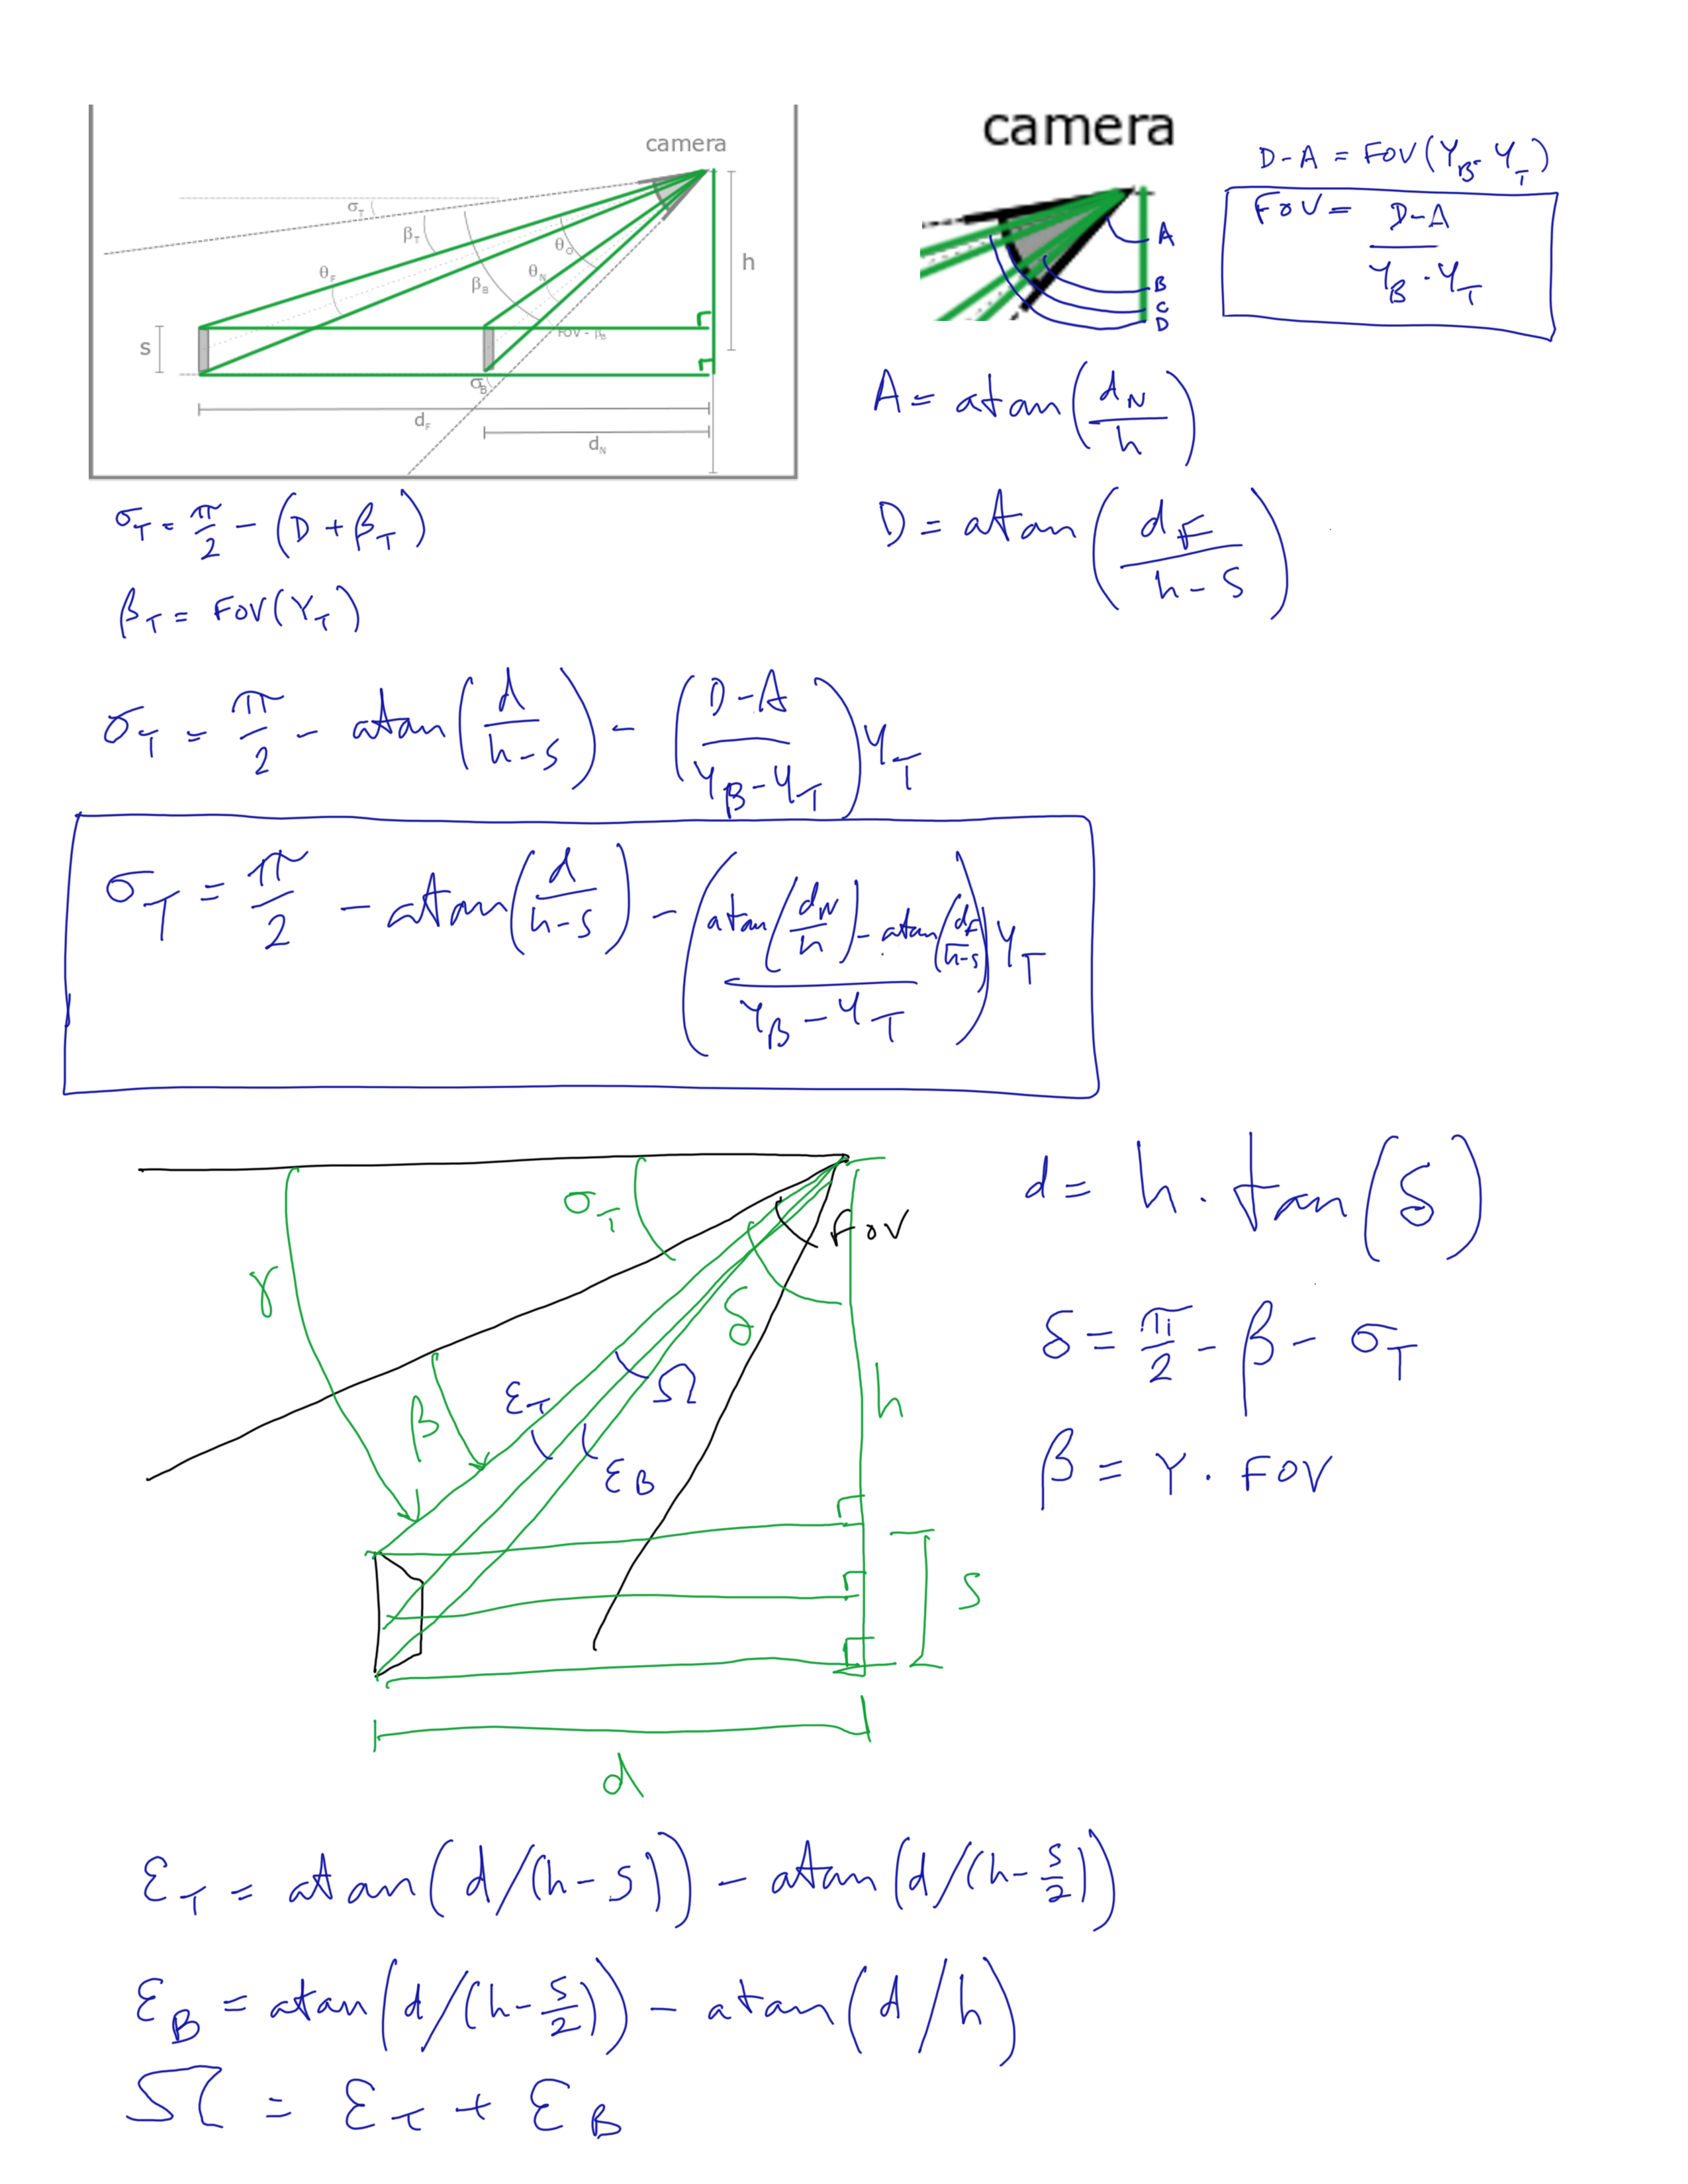 camera
σ_T
β_T
θ_F
θ_O
θ_N
β_B
h
s
FOV - β_B
σ_B
d_F
d_N
camera
A
B
C
D
D-A = FOV(Y_B - Y_T)
FOV = (D-A)/(Y_B - Y_T)
A = atan(d_N/h)
D = atan(d_F/(h-s))
σ_T = π/2 - (D + β_T)
β_T = FOV(Y_T)
σ_T = π/2 - atan(d/(h-s)) - ((D-A)/(Y_B-Y_T))Y_T
σ_T = π/2 - atan(d/(h-s)) - ((atan(d_N/h) - atan(d_F/(h-s)))/(Y_B-Y_T))Y_T
σ_T
FOV
γ
δ
β
ε_T
Ω
ε_B
h
s
d
d = h · tan(δ)
δ = π/2 - β - σ_T
β = Y · FOV
ε_T = atan(d/(h-s)) - atan(d/(h-s/2))
ε_B = atan(d/(h-s/2)) - atan(d/h)
Ω = ε_T + ε_B